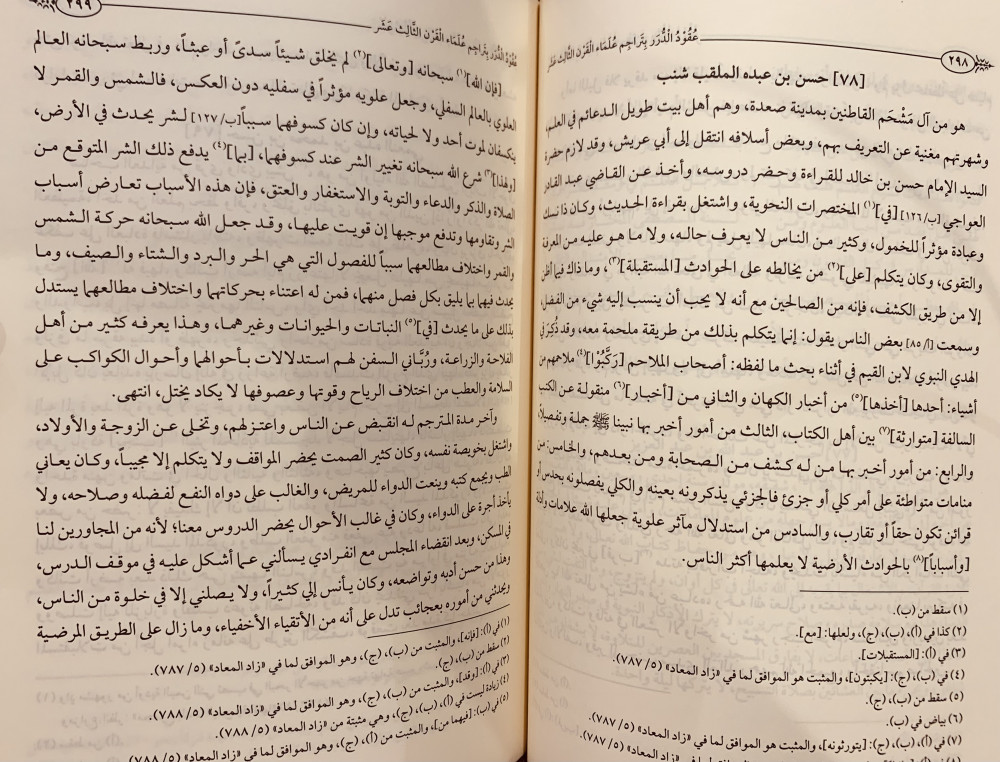 ٢٩٨
عُقُوْدُ الدُّرَر بِتَراجِم عُلَمَاء القَرْن الثَّالِث عَشَر
[٧٨] حسن بن عبده الملقب شنب
هو من آل مَشْحَم القاطنين بمدينة صعدة، وهم أهل بيت طويل الدعائم في العلم،
وشهرتهم مغنية عن التعريف بهم، وبعض أسلافه انتقل إلى أبي عريش، وقد لازم حضرة
السيد الإمام حسن بن خالد للقراءة وحضر دروسه، وأخذ عن القاضي عبد القادر
العواجي [ب/١٢٦] [في](١) المختصرات النحوية، واشتغل بقراءة الحديث، وكان ذا نسك
وعبادة مؤثراً للخمول، وكثير من الناس لا يعرف حاله، ولا ما هو عليه من المعرفة
والتقوى، وكان يتكلم [على](٢) من يخالطه على الحوادث [المستقبلة](٣)، وما ذاك فيما أظن
إلا من طريق الكشف، فإنه من الصالحين مع أنه لا يحب أن ينسب إليه شيء من الفضل،
وسمعت [أ/٨٥] بعض الناس يقول: إنما يتكلم بذلك من طريقة ملحمة معه، وقد ذُكِرَ في
الهدي النبوي لابن القيم في أثناء بحث ما لفظه: أصحاب الملاحم [رَكَّبُوْا](٤) ملاحمهم من
أشياء: أحدها [أخذها](٥) من أخبار الكهان والثاني من [أخبار](٦) منقولة عن الكتب
السالفة [متوارثة](٧) بين أهل الكتاب، الثالث من أمور أخبر بها نبينا ﷺ جملة وتفصيلاً،
والرابع: من أمور أخبر بها من له كشف من الصحابة ومن بعدهم، والخامس: من
منامات متواطئة على أمر كلي أو جزئ فالجزئي يذكرونه بعينه والكلي يفصلونه بحدس أو
قرائن تكون حقاً أو تقارب، والسادس من استدلال مآثر علوية جعلها الله علامات وأدلة
[وأسباباً](٨) بالحوادث الأرضية لا يعلمها أكثر الناس.
(١) سقط من (ب).
(٢) كذا في (أ)، (ب)، (ج)، ولعلها: [مع].
(٣) في (أ): [المستقبلات].
(٤) في (ب)، (ج): [يكبتون]، والمثبت هو الموافق لما في «زاد المعاد» (٥/ ٧٨٧).
(٥) سقط من (ب)، (ج).
(٦) بياض في (ب).
(٧) في (أ)، (ب)، (ج): [يتورثونه]، والمثبت هو الموافق لما في «زاد المعاد» (٥/ ٧٨٧).
٢٩٩
عُقُوْدُ الدُّرَر بِتَراجِم عُلَمَاء القَرْن الثَّالِث عَشَر
[فإن الله](١) سبحانه [وتعالى](٢) لم يخلق شيئاً سدىً أو عبثاً، وربط سبحانه العالم
العلوي بالعالم السفلي، وجعل علويه مؤثراً في سفليه دون العكس، فالشمس والقمر لا
ينكسفان لموت أحد ولا لحياته، وإن كان كسوفهما سبباً [ب/١٢٧] لشر يحدث في الأرض،
[ولهذا](٣) شرع الله سبحانه تغيير الشر عند كسوفهما، [بما](٤) يدفع ذلك الشر المتوقع من
الصلاة والذكر والدعاء والتوبة والاستغفار والعتق، فإن هذه الأسباب تعارض أسباب
الشر وتقاومها وتدفع موجبها إن قويت عليها، وقد جعل الله سبحانه حركة الشمس
والقمر واختلاف مطالعهما سبباً للفصول التي هي الحر والبرد والشتاء والصيف، وما
يحدث فيهما بما يليق بكل فصل منهما، فمن له اعتناء بحركاتهما واختلاف مطالعهما يستدل
بذلك على ما يحدث [في](٥) النباتات والحيوانات وغيرهما، وهذا يعرفه كثير من أهل
الفلاحة والزراعة، ورُبَّاني السفن لهم استدلالات بأحوالهما وأحوال الكواكب على
السلامة والعطب من اختلاف الرياح وقوتها وعصوفها لا يكاد يختل، انتهى.
وآخر مدة المترجم له انقبض عن الناس واعتزلهم، وتخلى عن الزوجة والأولاد،
واشتغل بخويصة نفسه، وكان كثير الصمت يحضر المواقف ولا يتكلم إلا مجيباً، وكان يعاني
الطب ويجمع كتبه وينعت الدواء للمريض، والغالب على دواه النفع لفضله وصلاحه، ولا
يأخذ أجرة على الدواء، وكان في غالب الأحوال يحضر الدروس معنا؛ لأنه من المجاورين لنا
في المسكن، وبعد انقضاء المجلس مع انفرادي يسألني عما أشكل عليه في موقف الدرس،
وهذا من حسن أدبه وتواضعه، وكان يأنس إلي كثيراً، ولا يصلني إلا في خلوة من الناس،
ويحدثني من أموره بعجائب تدل على أنه من الأتقياء الأخفياء، وما زال على الطريق المرضية
(١) في (أ): [فإنه]، والمثبت من (ب)، (ج)، وهو الموافق لما في «زاد المعاد» (٥/ ٧٨٧).
(٢) سقط من (ب)، (ج).
(٣) في (أ): [وقد]، والمثبت من (ب)، (ج)، وهو الموافق لما في «زاد المعاد» (٥/ ٧٨٨).
(٤) زيادة ليست في (أ)، (ب)، (ج)، وهي مثبتة من «زاد المعاد» (٥/ ٧٨٨).
(٥) في (ب): [فيهما من]، والمثبت من (أ)، (ج)، وهو الموافق لما في «زاد المعاد» (٥/ ٧٨٨).